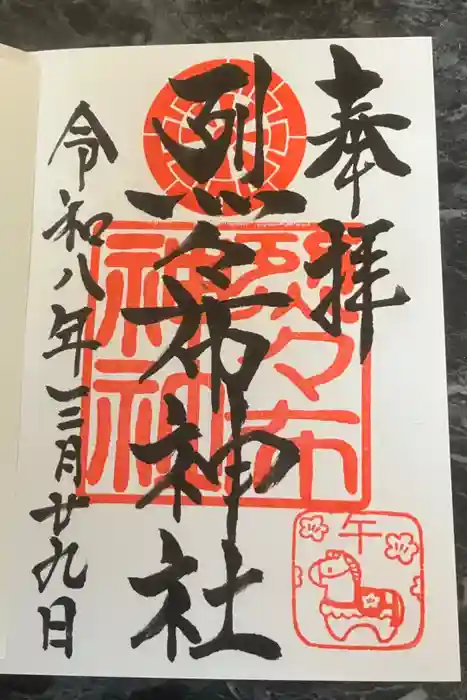 奉拝
烈々布神社
令和八年三月廿九日
烈々布
神社
午